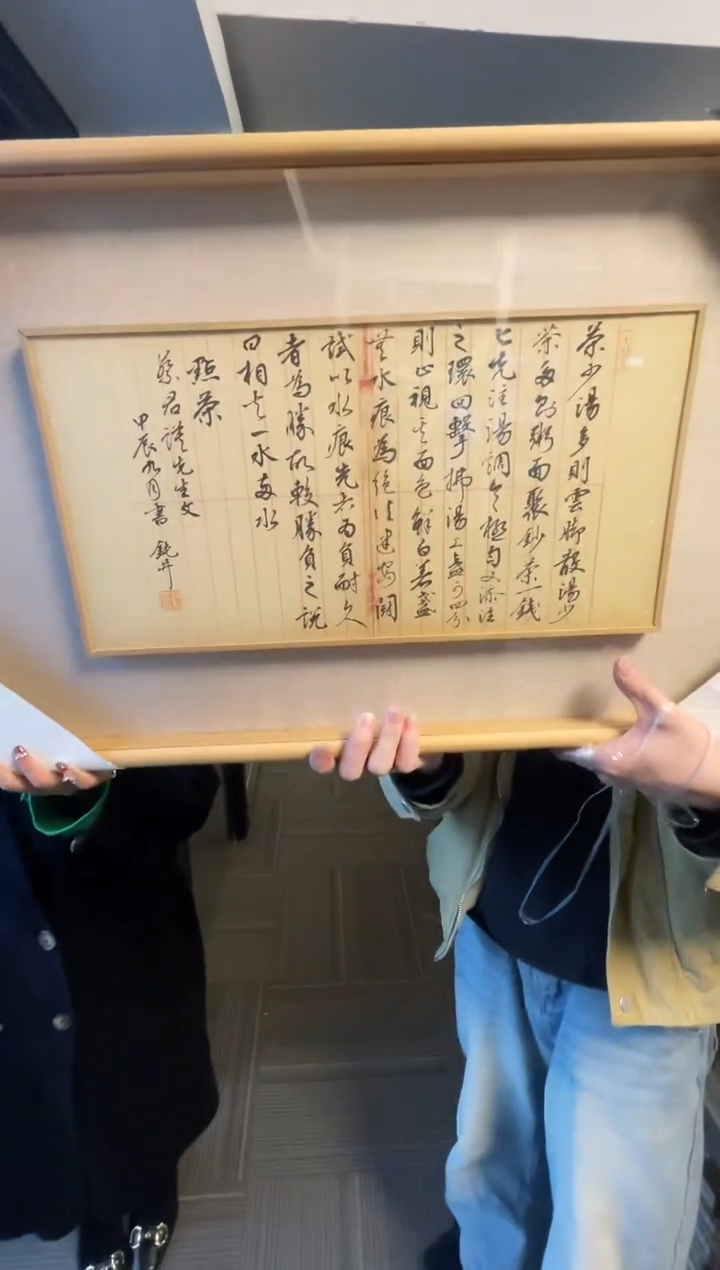 茶少湯多則雲腳散湯少
茶多則粥面聚鈔茶一錢
匕先注湯調令極勻又添注
之環回擊拂湯上盞可四分
則止視其面色鮮白著盞
無水痕為絕佳建安鬪
試以水痕先者為負耐久
者為勝故較勝負之說
曰相去一水兩水
點茶
蔡君謨先生文
甲辰九月書